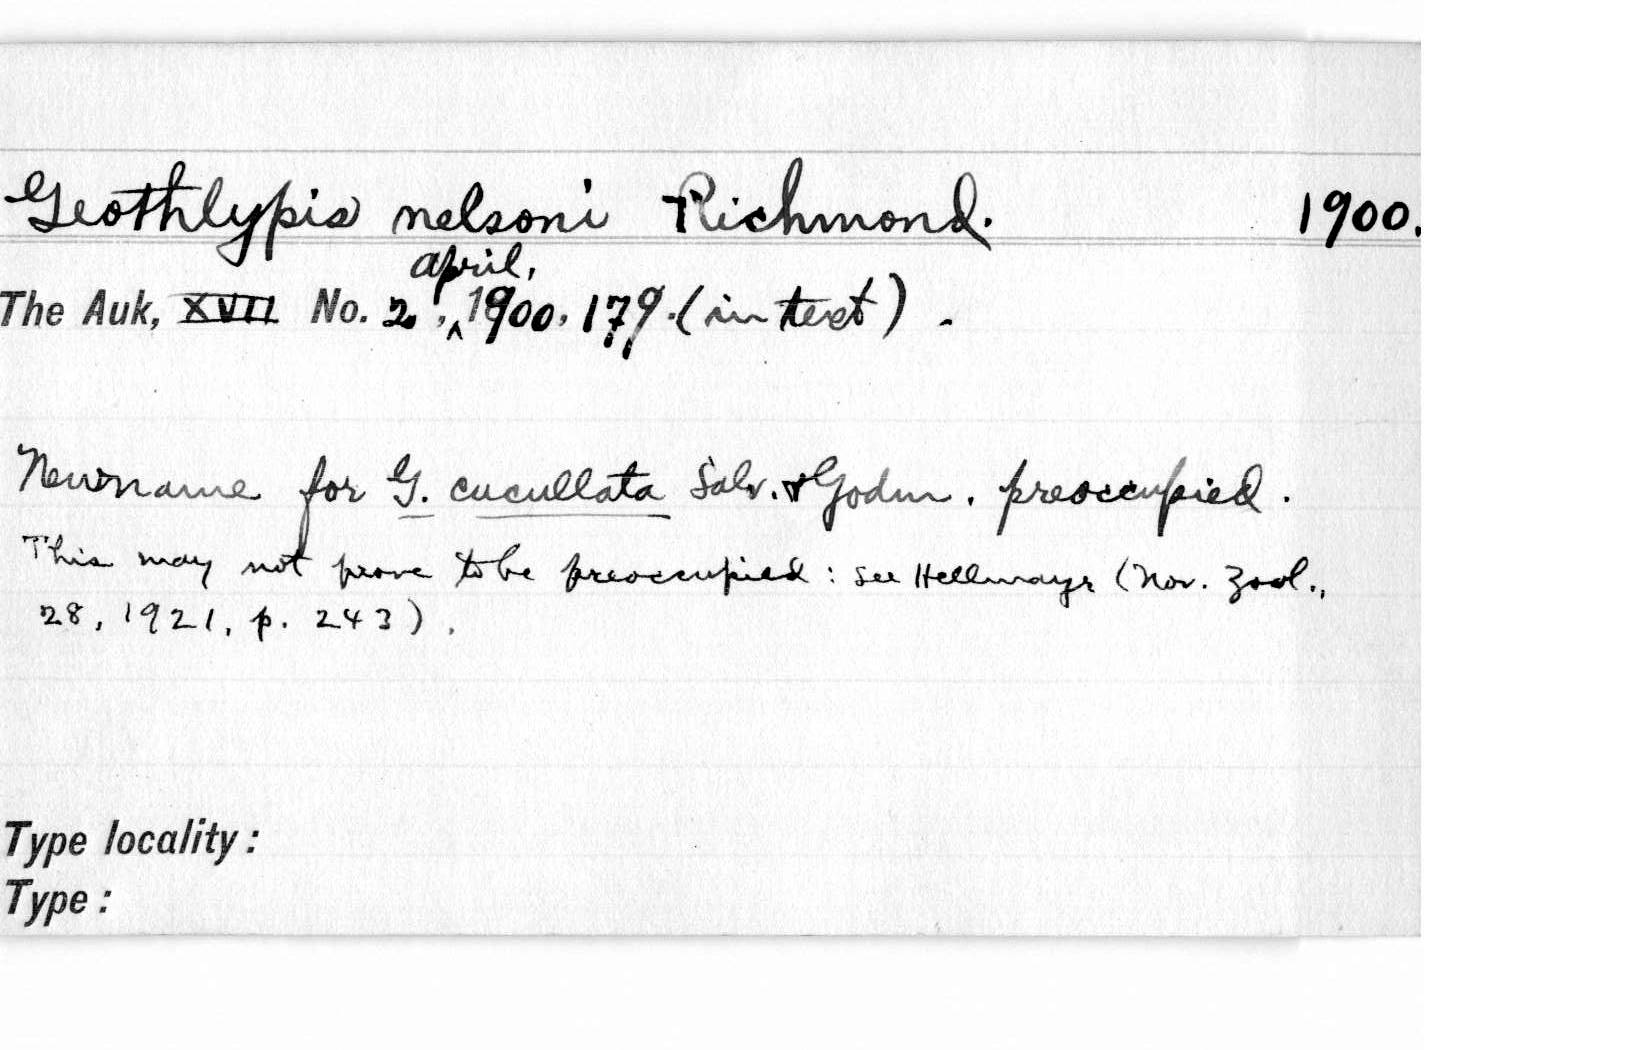 Geothlypis nelsoni Richmond. 1900.
april,
The Auk, XVII No. 2, 1900, 179. (in text).
New name for G. cucullata Salv. & Godm., preoccupied.
This may not prove to be preoccupied: see Hellmayr (Nov. Zool.,
28, 1921, p. 243).
Type locality:
Type: